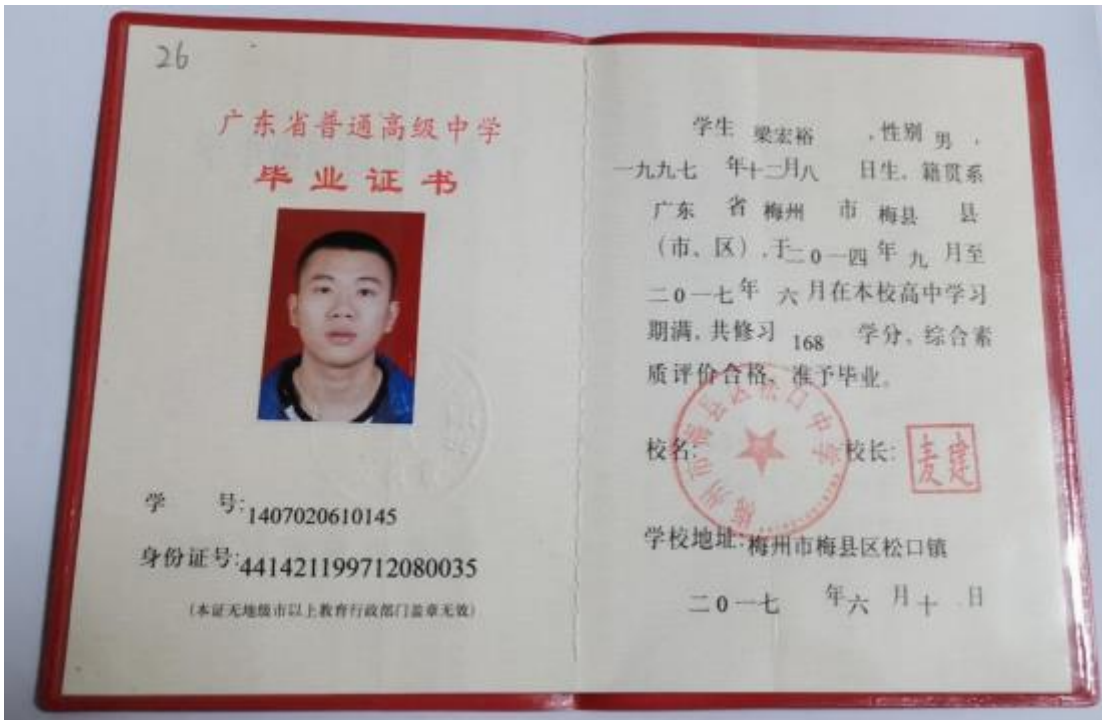 26
广东省普通高级中学
毕业证书
学号:1407020610145
身份证号:441421199712080035
(本证无地级市以上教育行政部门盖章无效)
学生 梁宏裕 ,性别 男 ,
一九九七 年十二月八 日生, 籍贯系
广东 省 梅州 市 梅县 县
(市、区),于二0一四 年 九 月至
二0一七年 六 月在本校高中学习
期满,共修习 168 学分,综合素
质评价合格,准予毕业。
校名: 校长: 麦建
梅州市梅县区松口中学
学校地址:梅州市梅县区松口镇
二0一七 年六 月十 日